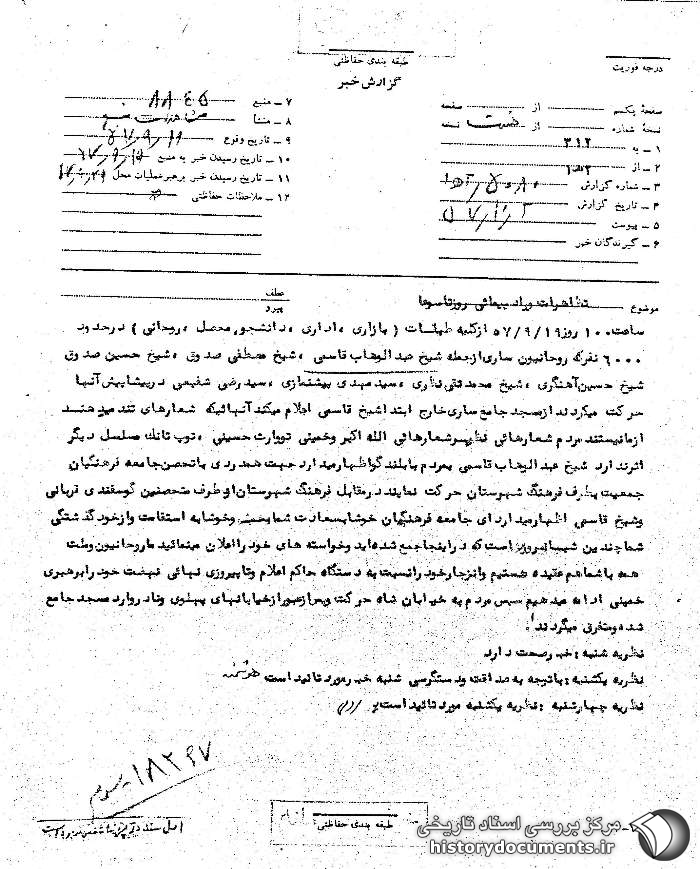 طبقه بندی حفاظتی
درجه فوریت
گزارش خبر
صفحه یکم ــ از ــ صفحه
نسخه شماره ــ از ــ نسخه
۱ ــ به ۳۱۲
۲ ــ از
۳ ــ شماره گزارش
۴ ــ تاریخ گزارش
۵ ــ پیوست
۶ ــ گیرندگان خبر
۷ ــ منبع
۸ ــ منشأ
۹ ــ تاریخ وقوع
۱۰ ــ تاریخ رسیدن خبر به منبع
۱۱ ــ تاریخ رسیدن خبر برهبر عملیات محل
۱۲ ــ ملاحظات حفاظتی
موضوع تظاهرات وراه پیمائی روزتاسوعا
عطف
پیرو
ساعت ۱۰۰۰ روز ۵۷/۹/۱۹ ازکلیه طبقات ( بازاری ،اداری ،دانشجو، محصل ،روحانی ) درحدود
۶۰۰۰ نفرکه روحانیون ساری ازجمله شیخ عبدالوهاب قاسمی ، شیخ مصطفی صدوق ، شیخ حسین صدوق
شیخ حسین آهنگری ، شیخ محمدتقی نظری ، سیدمهدی پیشنمازی ، سیدرضی شفیعی درپیشاپیش آنها
حرکت میکردند ازمسجد جامع ساری خارج ابتدا شیخ قاسمی اعلام میکند آنهائیکه شعارهای تند میدهند
ازمانیستند مردم شعارهائی نظیر شعارهائی الله اکبر وخمینی تووارث حسینی ، توپ تانک مسلسل دیگر
اثرندارد شیخ عبدالوهاب قاسمی بمردم بابلندگو اظهارمیدارد جهت همدردی باتحصن جامعه فرهنگیان
جمعیت بطرف فرهنگ شهرستان حرکت نمایند درمقابل فرهنگ شهرستان ازطرف متحصنین گوسفندی قربانی
وشیخ قاسمی اظهارمیدارد ای جامعه فرهنگیان خوشابسعادت شما وخوشابه استقامت وازخودگذشتگی
شما چندین شبانه روز است که دراینجا جمع شده اید وخواسته های خود رااعلان مینمائید ماروحانیون وملت
همه باشما هم عقیده هستیم وانزجارخود رانسبت به دستگاه حاکم اعلام وتاپیروزی نهائی نهضت خود رابرهبری
خمینی ادامه میدهیم سپس مردم به خیابان شاه حرکت وپس ازعبور ازخیابانهای پهلوی ونادر وارد مسجد جامع
شده ومتفرق میگردند.
نظریه شنبه : خبرصحت دارد
نظریه یکشنبه : باتوجه به صداقت ودسترسی شنبه خبرمورد تائید است
نظریه چهارشنبه : نظریه یکشنبه مورد تائید است.
طبقه بندی حفاظتی
مرکز بررسی اسناد تاریخی
historydocuments.ir